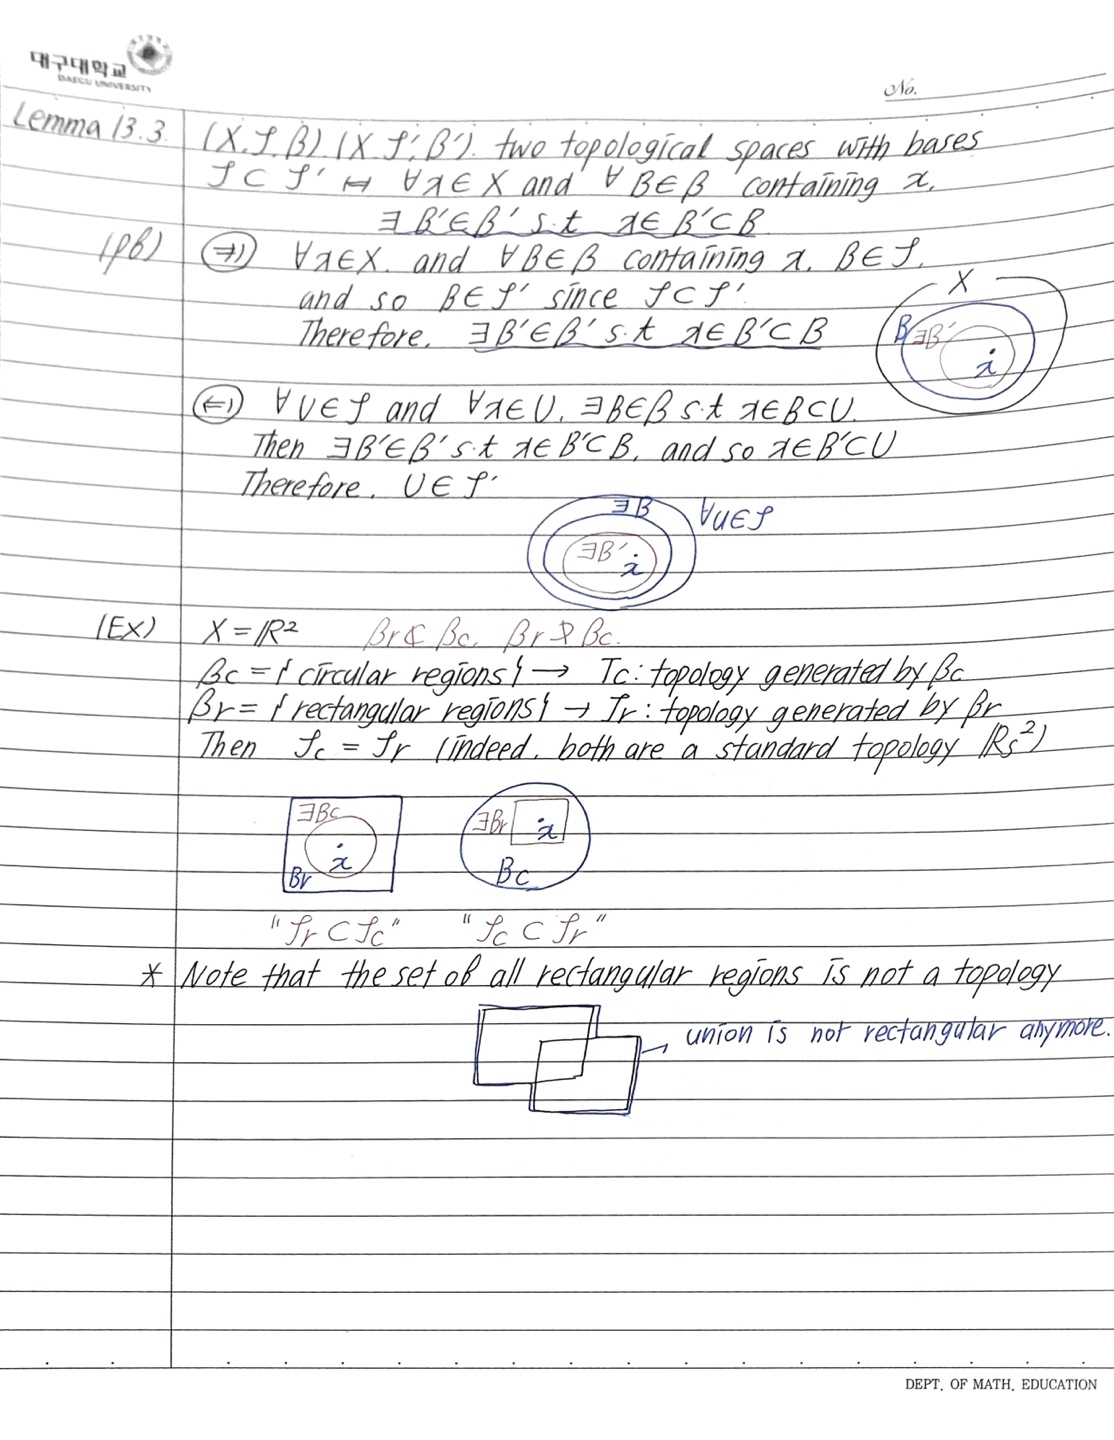 대구대학교
DAEGU UNIVERSITY
No.
Lemma 13.3. (X, 𝒯, β), (X, 𝒯', β'). two topological spaces with bases
𝒯 ⊂ 𝒯' ↔ ∀x∈X and ∀B∈β containing x,
∃B'∈β' s.t x∈B'⊂B
(pf) ⇒) ∀x∈X. and ∀B∈β containing x. B∈𝒯.
and so B∈𝒯' since 𝒯⊂𝒯'.
Therefore. ∃B'∈β' s.t x∈B'⊂B
X
B ∃B' x
⇐) ∀U∈𝒯 and ∀x∈U. ∃B∈β s.t x∈B⊂U.
Then ∃B'∈β' s.t x∈B'⊂B, and so x∈B'⊂U
Therefore. U∈𝒯'
∃B ∀U∈𝒯
∃B' x
(Ex) X = ℝ² βr⊄βc. βr⊅βc.
βc = { circular regions } → Tc : topology generated by βc
βr = { rectangular regions } → 𝒯r : topology generated by βr
Then 𝒯c = 𝒯r (indeed. both are a standard topology ℝs²)
∃Bc x Br
∃Br x Bc
"𝒯r ⊂ 𝒯c" "𝒯c ⊂ 𝒯r"
* Note that the set of all rectangular regions is not a topology
→ union is not rectangular anymore.
DEPT. OF MATH. EDUCATION